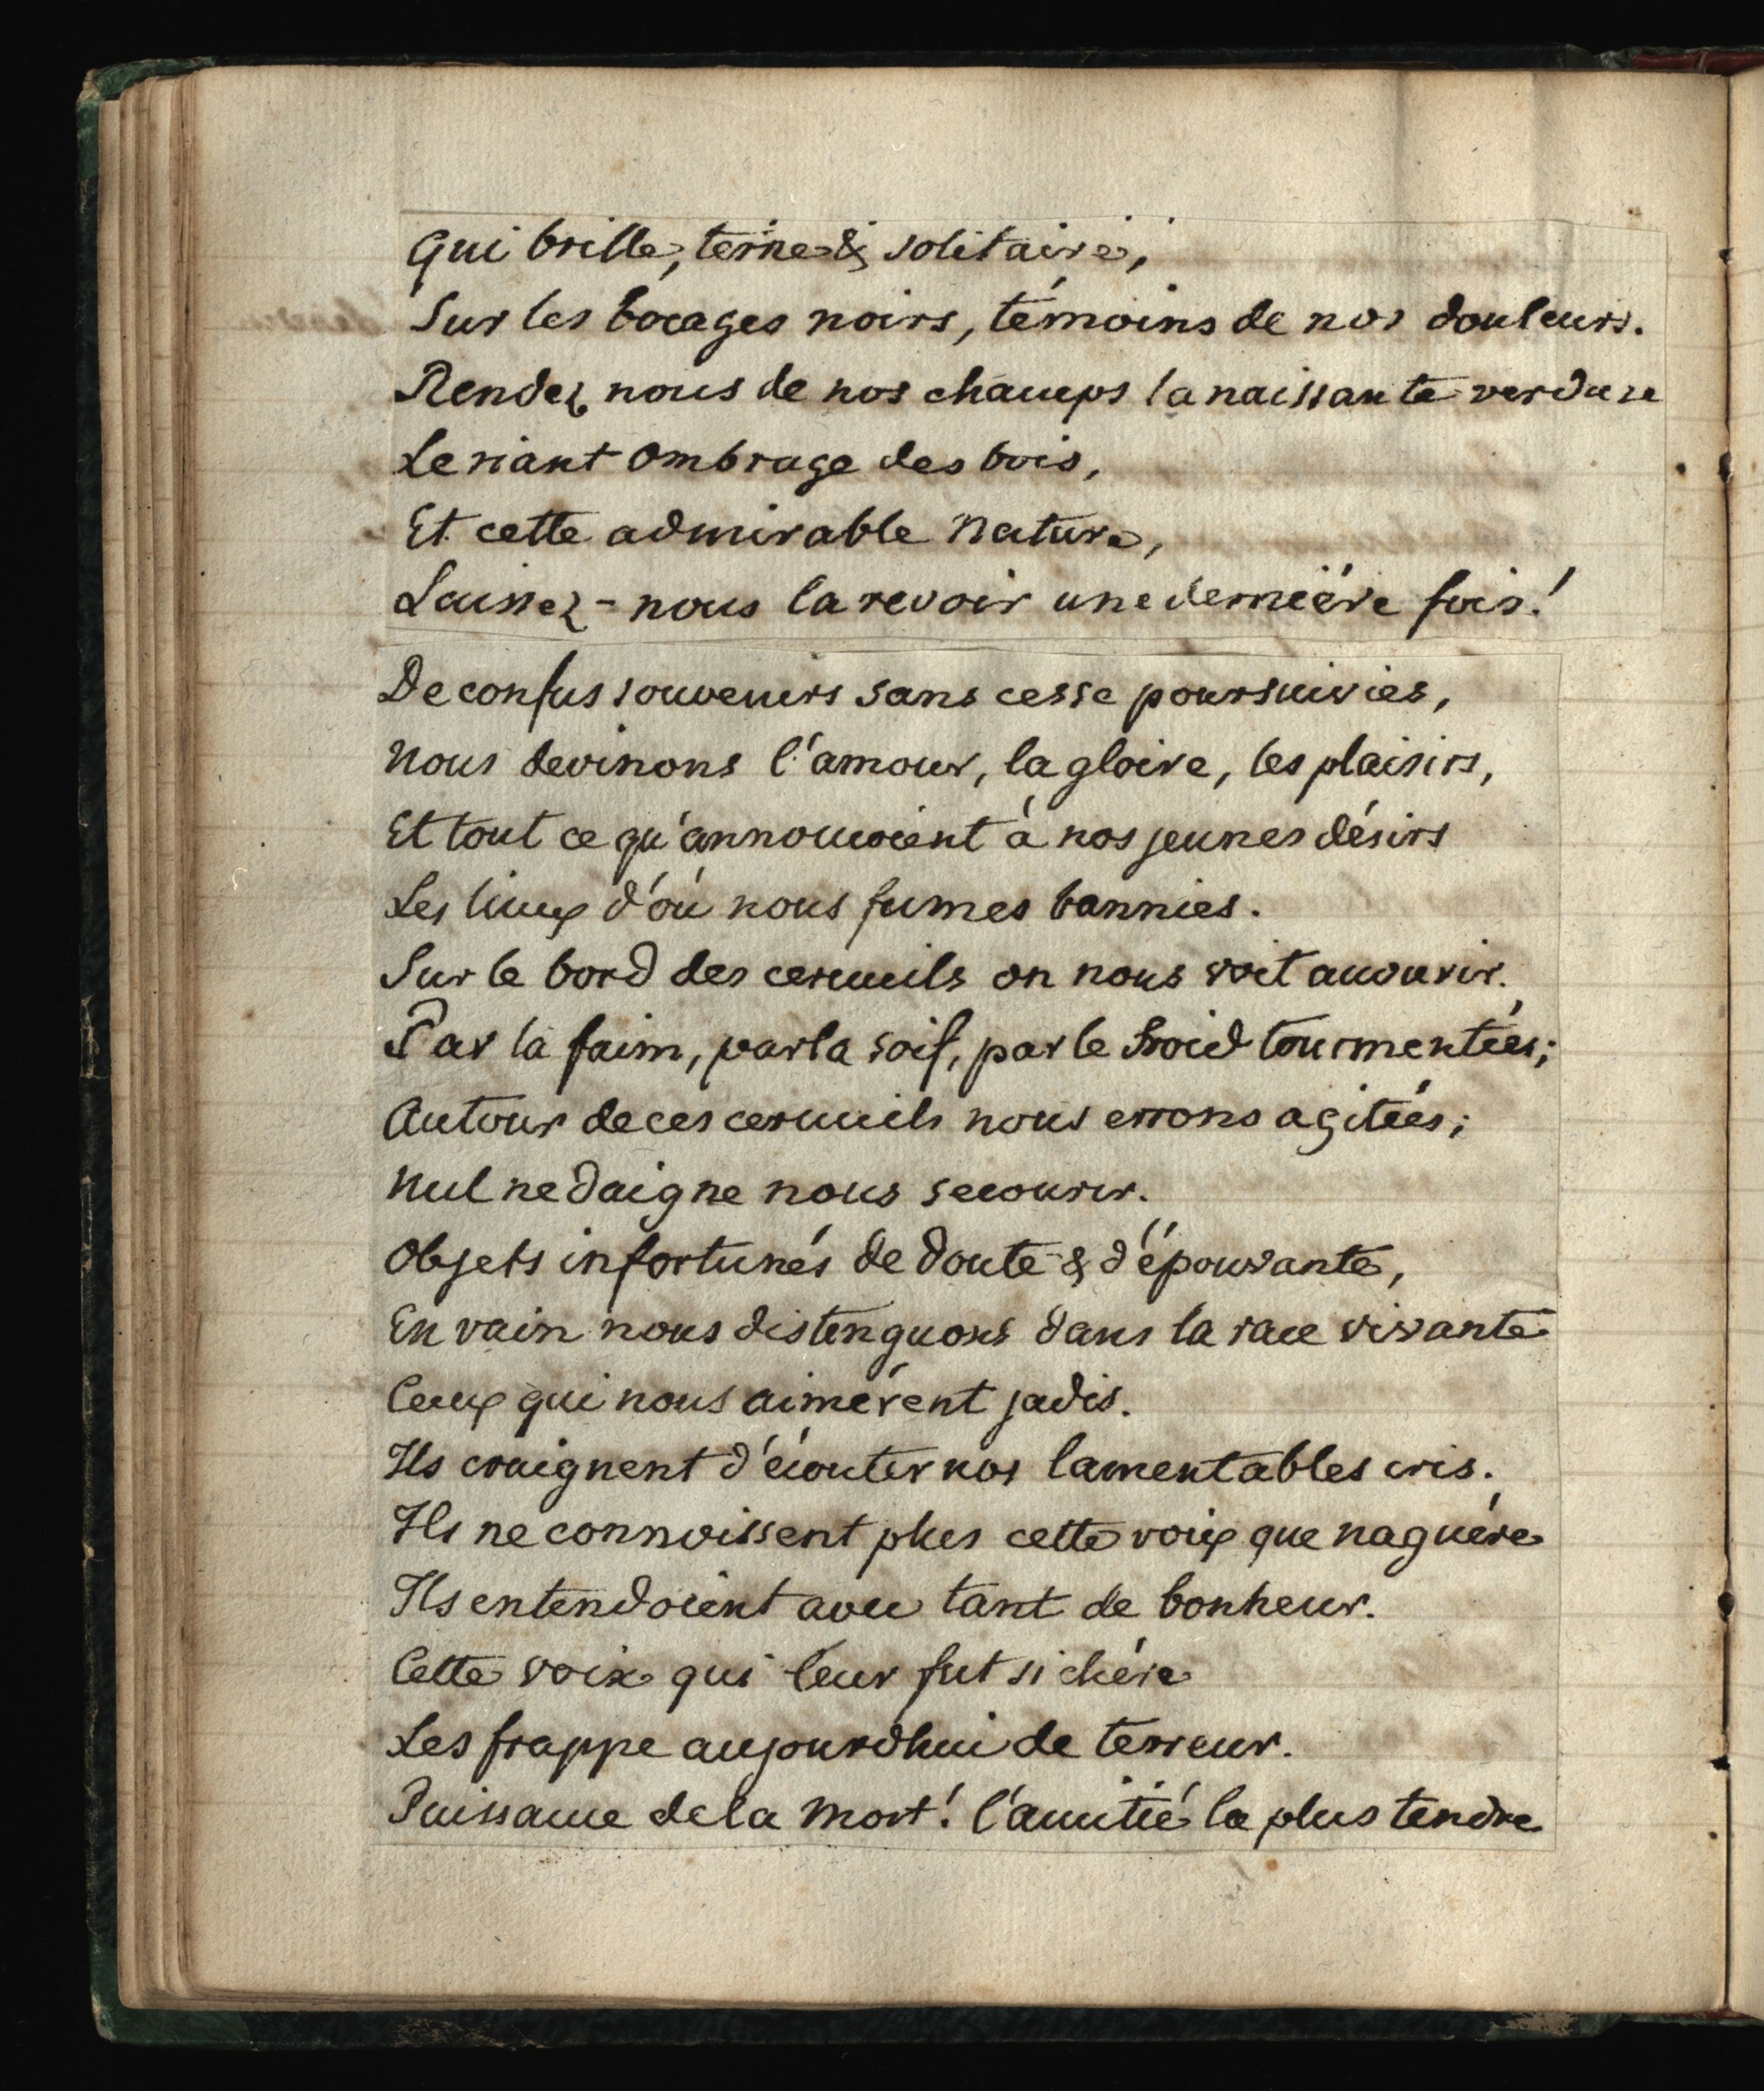 Qui brille, terne & solitaire,
Sur les bocages noirs, témoins de nos douleurs.
Rendez nous de nos champs la naissante verdure
Le riant Ombrage des bois,
Et cette admirable Nature,
Laissez-nous la revoir une dernière fois!
De confus souvenirs sans cesse poursuivies,
Nous devinons l'amour, la gloire, les plaisirs,
Et tout ce qu'annonçoient à nos jeunes désirs
Les lieux d'où nous fumes bannies.
Sur le bord des cercueils on nous voit accourir.
Par la faim, par la soif, par le froid tourmentées;
Autour de ces cercueils nous errons agitées;
Nul ne daigne nous secourir.
Objets infortunés de doute & d'épouvante,
En vain nous distinguons dans la race vivante
Ceux qui nous aimèrent jadis.
Ils craignent d'écouter nos lamentables cris.
Ils ne connoissent plus cette voix que naguère
Ils entendoient avec tant de bonheur.
Cette voix qui leur fut si chère
Les frappe aujourdhui de terreur.
Puissance de la Mort! l'amitié la plus tendre